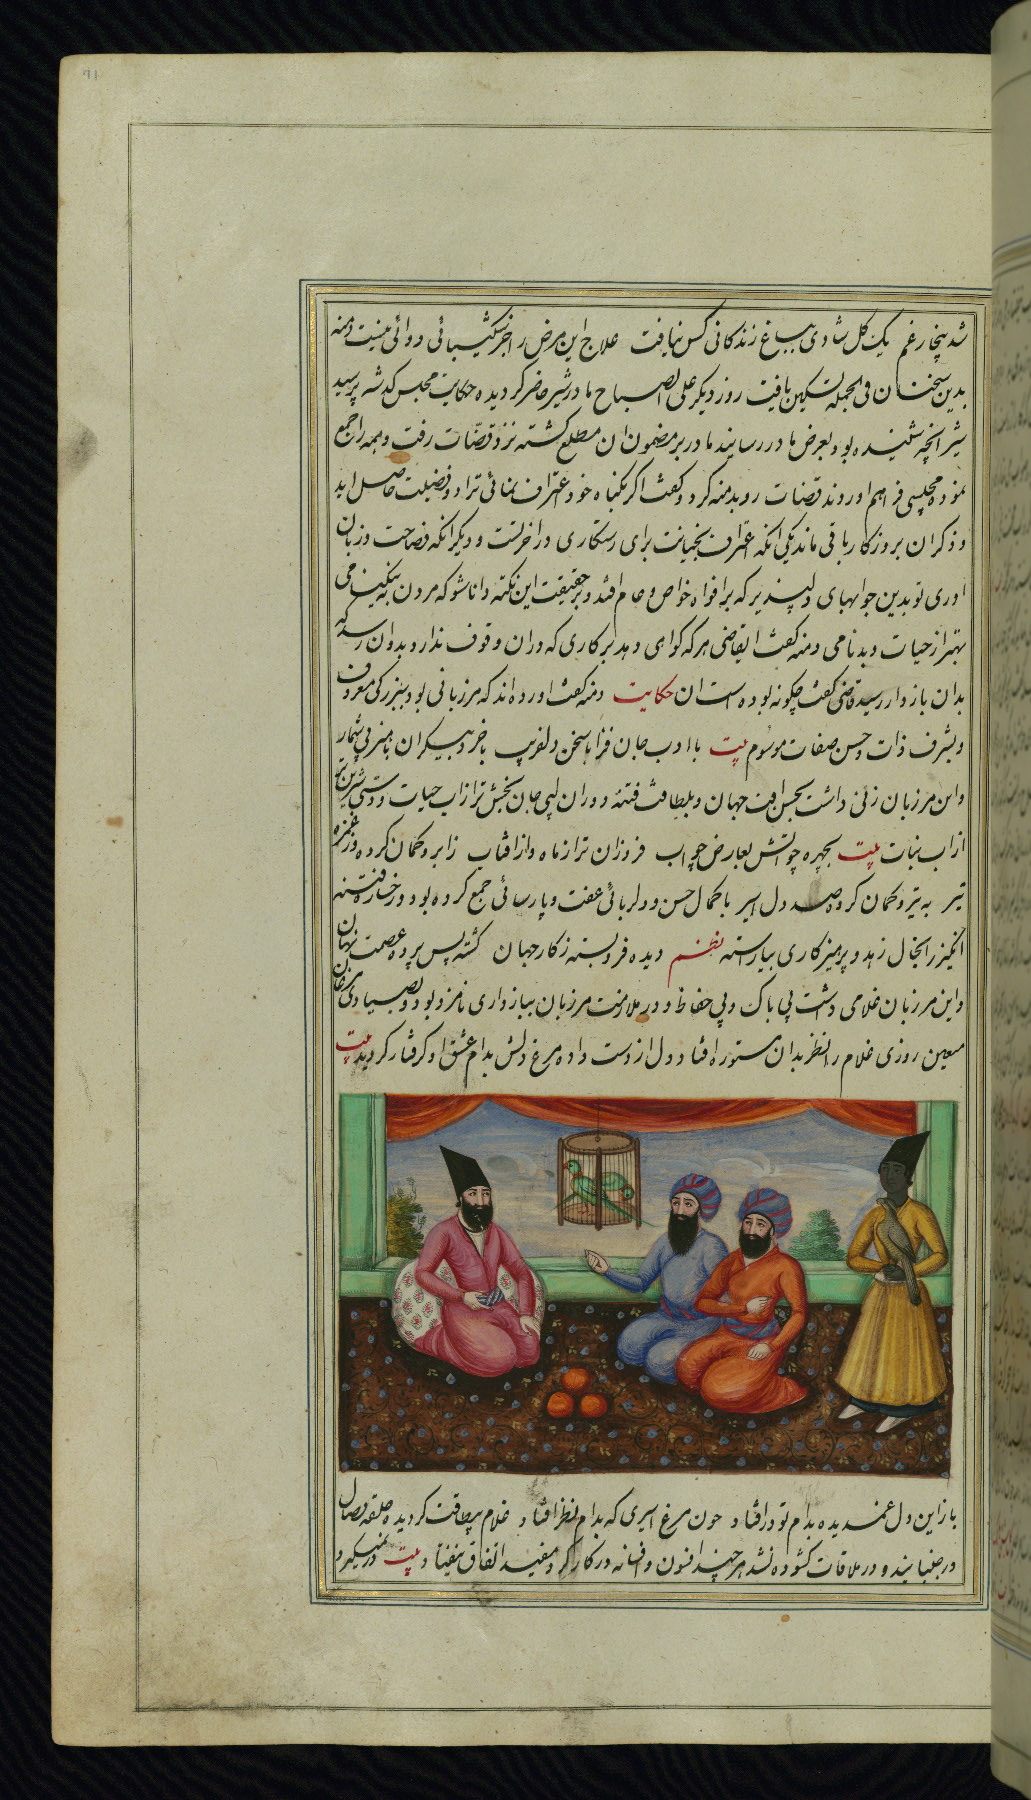 71
شد بیخار غم یک گل شادی بباغ زندگانی کس نیافت علاج این مرض را جز شکیبائی دوائی نیست دمنه
بدین سخنان فی الجمله تسکین یافت روز دیکر علی الصباح مادر شیر حاضر کردیده حکایت مجلس کذشته پرسید
شیر انچه شنیده بود بعرض مادر رسانید مادر بر مضمون ان مطلع کشته نزد قضات رفت و همه را جمع
نموده مجلسی فراهم اوردند قضات رو بدمنه کرد و کفت اکر بکناه خود اعتراف نمائی ترا دو فضیلت حاصل اید
و ذکر ان بروزکار باقی ماند یکی انکه اعتراف بخیانت برای رستکاری در اخرتست و دیکر انکه فصاحت و زبان
اوری تو بدین جوابهای دلپذیر که بر افواه خواص و عام افتد و بر حقیقت این نکته دانا شو که مردن به نیکنامی
بهتر از حیات و بدنامی دمنه کفت ایقاضی هر که کواهی دهد بر کاری که در ان وقوف ندارد بدو ان رسد که
بدان بازدار رسید قاضی کفت چکونه بوده است ان حکایت دمنه کفت اورده اند که مرزبانی بود ببزرکی معروف
و بشرف ذات و حسن صفات موسوم بیت با ادب جان فزا با سخن دلفریب با خرد بیکران با هنر بی شمار
و این مرزبان زنی داشت بحسن افت جهان و بلطافت فتنهٔ دوران لبی جان بخش تر از اب حیات و دستی شیرین تر
از اب نبات بیت بچهره چو اتش بعارض چو اب فروزان تر از ماه و از افتاب ز ابرو کمان کرده وز غمزه
تیر به تیر و کمان کرده صد دل اسیر با کمال حسن و دلربائی عفت و پارسائی جمع کرده بود و رخساره فتنه
انکیز را بخال زهد و پرهیزکاری بیاراسته نظم دیده فرو بسته ز کار جهان کشته پس پرده عصمت نهان
و این مرزبان غلامی داشت بی باک و بی حفاظ و در ملازمت مرزبان ببازداری نامزد بود و بصیادی مرغان
معین روزی غلام را نظر بدان مستوره افتاد و دل از دست داده مرغ دلش بدام عشق او کرفتار کردید بیت
باز این دل غمدیده بدام تو در افتاد چون مرغ اسیری که بدام نظر افتاد غلام بیطاقت کردیده حلقه وصال
در جنبانید و در ملاقات کشوده نشد هر چند افسون و افسانه در کار کرد مفید اتفاق نیفتاد بیت